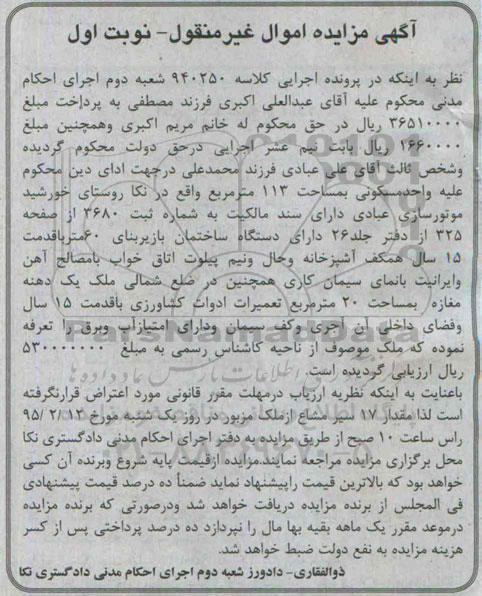 آگهی مزایده اموال غیرمنقول- نوبت اول
نظر به اینکه در پرونده اجرایی کلاسه ۹۴۰۲۵۰ شعبه دوم اجرای احکام
مدنی محکوم علیه آقای عبدالعلی اکبری فرزند مصطفی به پرداخت مبلغ
۳۶۵۱۰۰۰۰ ریال در حق محکوم له خانم مریم اکبری وهمچنین مبلغ
۱۶۶۰۰۰۰ ریال بابت نیم عشر اجرایی درحق دولت محکوم گردیده
وشخص ثالث آقای علی عبادی فرزند محمدعلی درجهت ادای دین محکوم
علیه واحدمسکونی بمساحت ۱۱۳ مترمربع واقع در نکا روستای خورشید
موتورسازی عبادی دارای سند مالکیت به شماره ثبت ۳۶۸۰ از صفحه
۳۲۵ از دفتر جلد۲۶ دارای دستگاه ساختمان بازیربنای ۶۰مترباقدمت
۱۵ سال همکف آشپزخانه وحال ونیم پیلوت اتاق خواب بامصالح آهن
وایرانیت بانمای سیمان کاری همچنین در ضلع شمالی ملک یک دهنه
مغازه بمساحت ۲۰ مترمربع تعمیرات ادوات کشاورزی باقدمت ۱۵ سال
وفضای داخلی آن آجری وکف سیمان ودارای امتیازآب وبرق را تعرفه
نموده که ملک موصوف از ناحیه کاشناس رسمی به مبلغ ۵۳۰۰۰۰۰۰۰
ریال ارزیابی گردیده است.
باعنایت به اینکه نظریه ارزیاب درمهلت مقرر قانونی مورد اعتراض قرارنگرفته
است لذا مقدار ۱۷ سیر مشاع ازملک مزبور در روز یک شنبه مورخ ۹۵/۲/۱۲
راس ساعت ۱۰ صبح از طریق مزایده به دفتر اجرای احکام مدنی دادگستری نکا
محل برگزاری مزایده مراجعه نمایند.مزایده ازقیمت پایه شروع وبرنده آن کسی
خواهد بود که بالاترین قیمت راپیشنهاد نماید ضمنأ ده درصد قیمت پیشنهادی
فی المجلس از برنده مزایده دریافت خواهد شد ودرصورتی که برنده مزایده
درموعد مقرر یک ماهه بقیه بها مال را نپردازد ده درصد پرداختی پس از کسر
هزینه مزایده به نفع دولت ضبط خواهد شد.
ذوالفقاری- دادورز شعبه دوم اجرای احکام مدنی دادگستری نکا
ParsNamadData